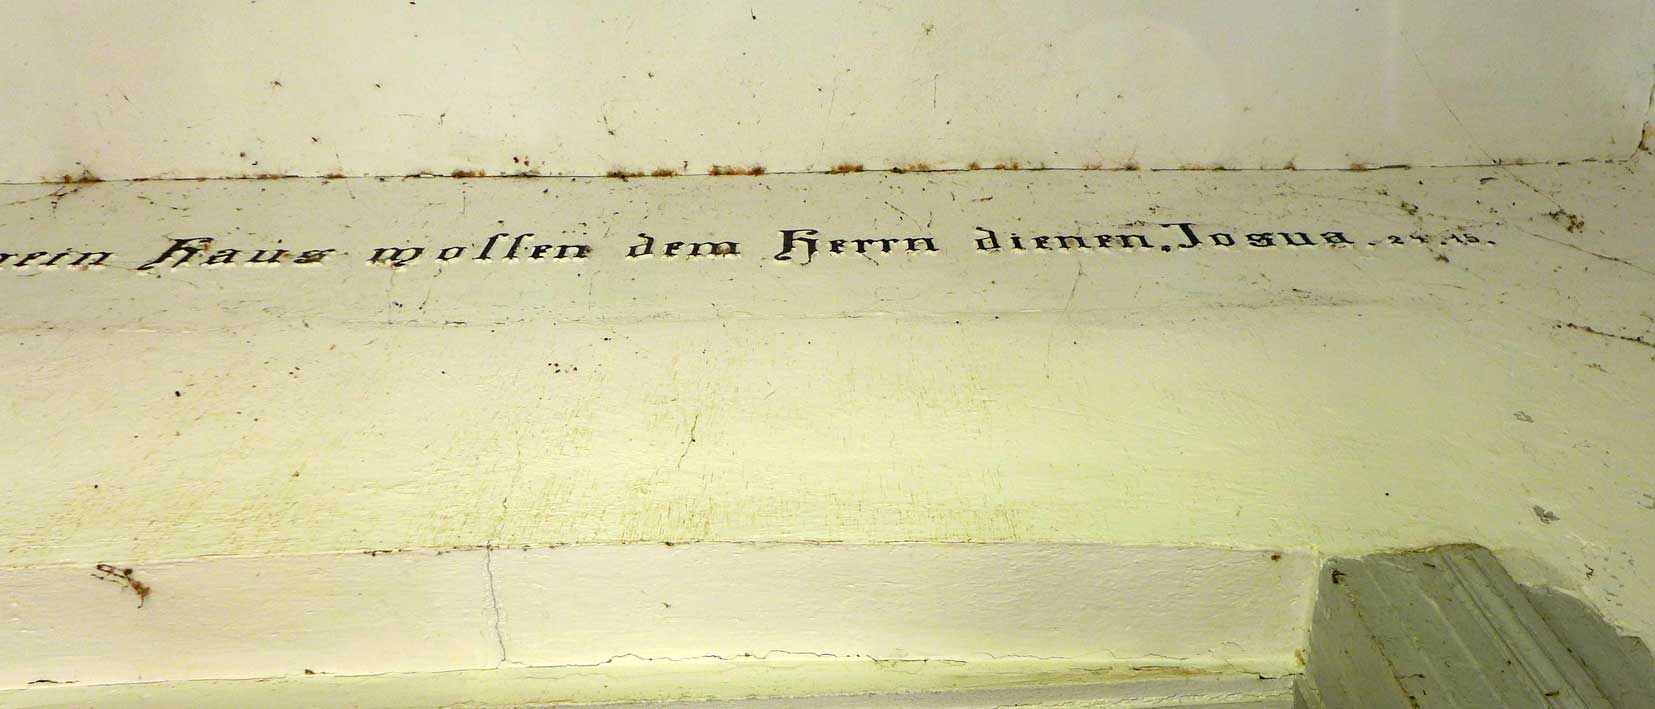 mein Haus wollen dem Herrn dienen. Josua. 24.15.